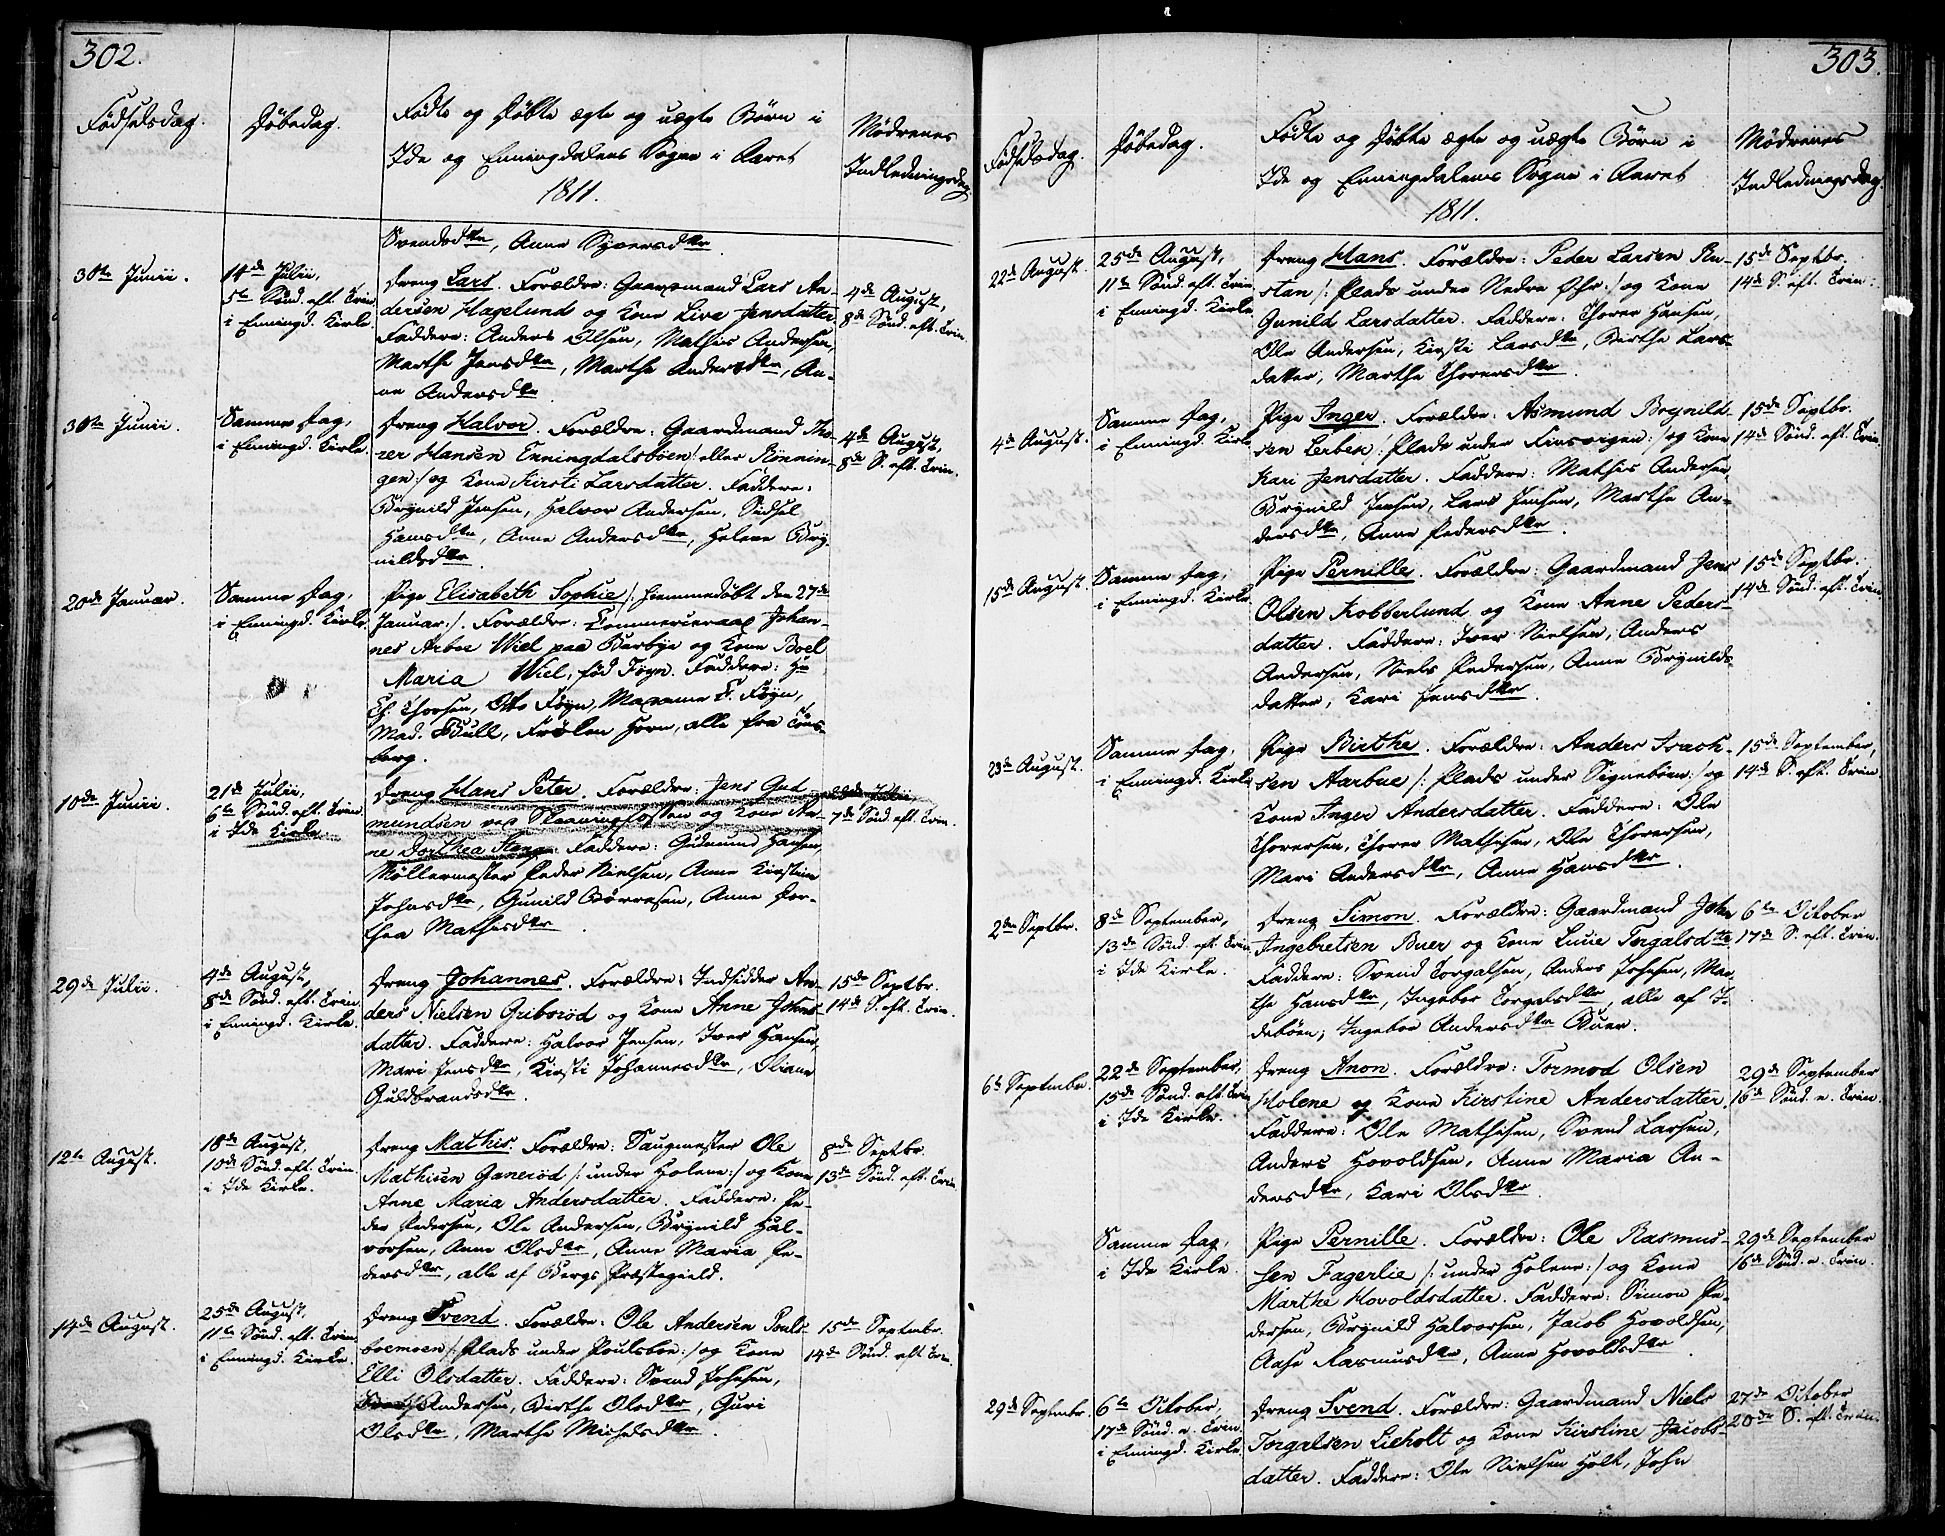 302.
Fødselsdag.
Døbedag.
Fødte og Døbte ægte og uægte Børn i
Ide og Enningdalens Sogne i Aaret
1811.
Mødrenes
Indledningsdag.
Svendsdtr, Anne Syversdtr.
30te Junii.
14de Julii,
5te Sønd. eft. Trin.
i Enningd. Kirke.
Dreng Lars. Forældre: Gaardmand Lars An-
dersen Hagelund og Kone Live Jensdatter
Faddere: Anders Olsen, Mathis Andersen,
Marthe Jensdtr, Marthe Andersdtr, An-
ne Andersdtr.
4de August,
8de Sønd. eft. Trin.
30te Junii.
Samme Dag,
i Enningd. Kirke.
Dreng Halvor. Forældre: Gaardmand Tho-
rer Hansen Enningdalsbøen /: eller Rønnin-
gen :/ og Kone Kirsti Larsdatter. Faddere:
Brynild Jensen, Halvor Andersen, Sidsel
Hansdtr, Anne Andersdtr, Helene Bry-
nildsdtr.
4de August,
8de S. eft. Trin.
20de Januar.
Samme Dag,
i Enningd. Kirke.
Pige Elisabeth Sophie /: hjemmedøbt den 27de
Januar :/. Forældre: Commerceraad Johan-
nes Arboe Wiel paa Berbye og Kone Boel
Maria Wiel, fød Føyn. Faddere: Hr
Th. Thorsen, Otto Føyn, Madame F. Føyn,
Mad. Bull, Frøken Horn, alle fra Tøns-
berg.
10de Junii.
21de Julii,
6te Sønd. eft. Trin.
i Ide Kirke.
Dreng Hans Peter. Forældre: Jens Gud
mundsen ved Skaaningfossen og Kone An-
ne Dorthea Stang. Faddere: Gudmund Hansen,
Møllermester Peder Nielsen, Anne Kirstine
Johnsdtr, Gunild Børresen, Anne Dor-
thea Mathisdtr.
Julii
7de Sønd. eft. Trin.
29de Julii.
4de August,
8de Sønd. eft. Trin.
i Enningd. Kirke.
Dreng Johannes. Forældre: Indsidder An-
ders Nielsen Griborød og Kone Anne Johns-
datter. Faddere: Halvor Jensen, Iver Hansen,
Mari Jensdtr, Kirsti Johannesdtr, Oliane
Guldbrandsdtr.
15de Septbr.
14de S. eft. Trin.
12te August.
18de August,
10de Sønd. eft. Trin.
i Ide Kirke.
Dreng Mathis. Forældre: Saugmester Ole
Mathisen Ganerød /: under Holene :/ og Kone
Anne Maria Andersdatter. Faddere: Pe-
der Pedersen, Ole Andersen, Brynild Hal-
vorsen, Anne Olsdtr, Anne Maria Pe-
dersdtr, alle af Bergs Præstegield.
8de Septbr.
13de Sønd. eft. Trin.
14de August.
25de August,
11te Sønd. eft. Trin.
i Enningd. Kirke.
Dreng Svend. Forældre: Ole Andersen Pouls-
boemoen /: Plads under Poulsboe :/ og Kone
Elli Olsdatter. Faddere: Svend Johnsen,
Andersen, Birthe Olsdtr, Guri
Olsdtr, Marthe Michelsdtr.
15de Septembr.
14de Sønd. eft. Trin.
303.
Fødselsdag.
Døbedag.
Fødte og Døbte ægte og uægte Børn i
Ide og Enningdalens Sogne i Aaret
1811.
Mødrenes
Indledningsdag.
22de August.
25de August,
11te Sønd. eft. Trin.
i Enningd. Kirke.
Dreng Hans. Forældre: Peder Larsen Ru-
stan /: Plads under Nedre Øhr :/ og Kone
Gunild Larsdatter. Faddere: Thorer Hansen,
Ole Andersen, Kirsti Larsdtr, Birthe Lars-
datter, Marthe Thorersdtr.
15de Septbr.
14de S. eft. Trin:
4de August.
Samme Dag,
i Enningd. Kirke.
Pige Inger. Forældre: Asmund Brynild-
sen Lerbek /: Plads under Kirsvigen :/ og Kone
Kari Jensdatter. Faddere: Mathis Andersen,
Brynild Jensen, Lars Jensen, Marthe An-
dersdtr, Anne Pedersdtr.
15de Septbr.
14de Sønd. eft. Trin.
15de August.
Samme Dag,
i Enningd. Kirke.
Pige Pernille. Forældre: Gaardmand Jens
Olsen Kobberlund og Kone Anne Peders-
datter. Faddere: Iver Nielsen, Anders
Andersen, Niels Pedersen, Anne Brynilds-
datter, Kari Jensdtr.
15de Septbr.
14de Sønd. eft. Trin.
23de August.
Samme Dag,
i Enningd. Kirke
Pige Birthe. Forældre: Anders Isach-
sen Aarbue /: Plads under Signebøen :/ og
Kone Inger Andersdatter. Faddere: Ole
Thorersen, Thorer Mathisen, Ole Thorersen,
Mari Andersdtr, Anne Hansdtr.
15de September,
14de S. eft. Trin.
2den Septbr.
8de September,
13de Sønd. eft. Trin.
i Ide Kirke.
Dreng Simon. Forældre: Gaardmand John
Ingebretsen Buer og Kone Lucie Torgalsdtr.
Faddere: Svend Torgalsen, Anders Johnsen, Mar-
the Hansdtr, Ingebor Torgalsdtr, alle af I-
debøen; Ingebor Andersdtr Buer.
6te October
17de S. eft. Trin.
6te Septembr.
22de September,
15de Sønd. eft. Trin
i Ide Kirke.
Dreng Anon. Forældre: Tormod Olsen
Holene og Kone Kirstine Andersdatter.
Faddere: Ole Mathisen, Svend Larsen,
Anders Hovoldsen, Anne Maria An-
dersdtr, Kari Olsdtr.
29de September
16de Sønd. e. Trin.
Samme Dag,
i Ide Kirke.
Pige Pernille. Forældre: Ole Rasmus-
sen Fagerlie /: under Holene :/ og Kone
Marthe Hovoldsdatter. Faddere: Simon Pe-
dersen, Brynild Halvorsen, Jacob Hovoldsen,
Aase Rasmusdtr, Anne Hovoldsdtr.
29de September
16de Sønd. e. Trin.
29de Septembr.
6te October,
17de Sønd. e. Trin.
i Enningd. Kirke
Dreng Svend. Forældre: Gaardmand Niels
Torgalsen Lieholt og Kone Kirstine Jacobs-
datter. Faddere: Ole Nielsen Holt, John
27de October
20de S. eft. Trin.